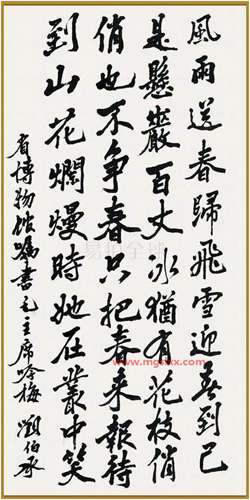 風雨送春歸飛雪迎春到已
是懸巖百丈冰猶有花枝俏
俏也不争春只把春來報待
到山花爛熳時她在叢中笑
省博物館嘱書毛主席咏梅 劉伯承
易拍全球